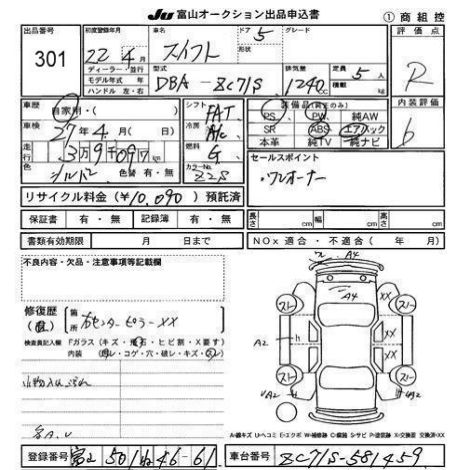 JU 富山オークション出品申込書
① 商 組 控
出品番号 301
初度登録年月 22年4月
車名 スイフト
ドア 5
形状
グレード
評価点 R
ディーラー・並行
モデル年式 年
ハンドル 左・右
型式 DBA-ZC71S
排気量 1240cc
定員 5人
積載 kg
車歴 自家用・( )
シフト FAT
装備品(純正のみ)
PS PW 純AW
SR ABS エアバック
本革 純TV 純ナビ
内装評価 b
車検 27年4月( 日)
冷房 A/c
走行 3万9千097km
燃料 G
色 シルバー 色替 有・無
カラーNo. Z2S
セールスポイント
・ワンオーナー
リサイクル料金(¥10,090)預託済
保証書 有・無 記録簿 有・無
長さ cm 幅 cm 高さ cm
書類有効期限 月 日まで
NOx 適合・不適合( 年 月)
不良内容・欠品・注意事項等記載欄
修復歴(有) 箇所 右センターピラーXX
検査員記入欄 Fガラス(キズ・飛石・ヒビ割・X要す)
内装 (汚レ・コゲ・穴・破レ・キズ・スレ)
A4
A4
XX
XX
XX
A2
h
h
スト
スト
スト
スト
A-線キズ U-ヘコミ E-エクボ W-補修跡 C-腐蝕 S-サビ P-塗装跡 X-交換要 交換済-XX
登録番号 富山 501 ね 46-61
車台番号 ZC71S-581459